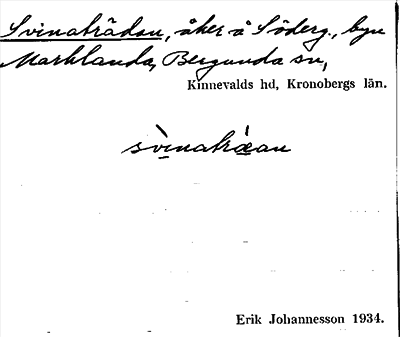 Svinaträdan, åker å Söderg., byn
Marklanda, Bergunda sn,
Kinnevalds hd, Kronobergs län.
svinatráan
Erik Johannesson 1934.